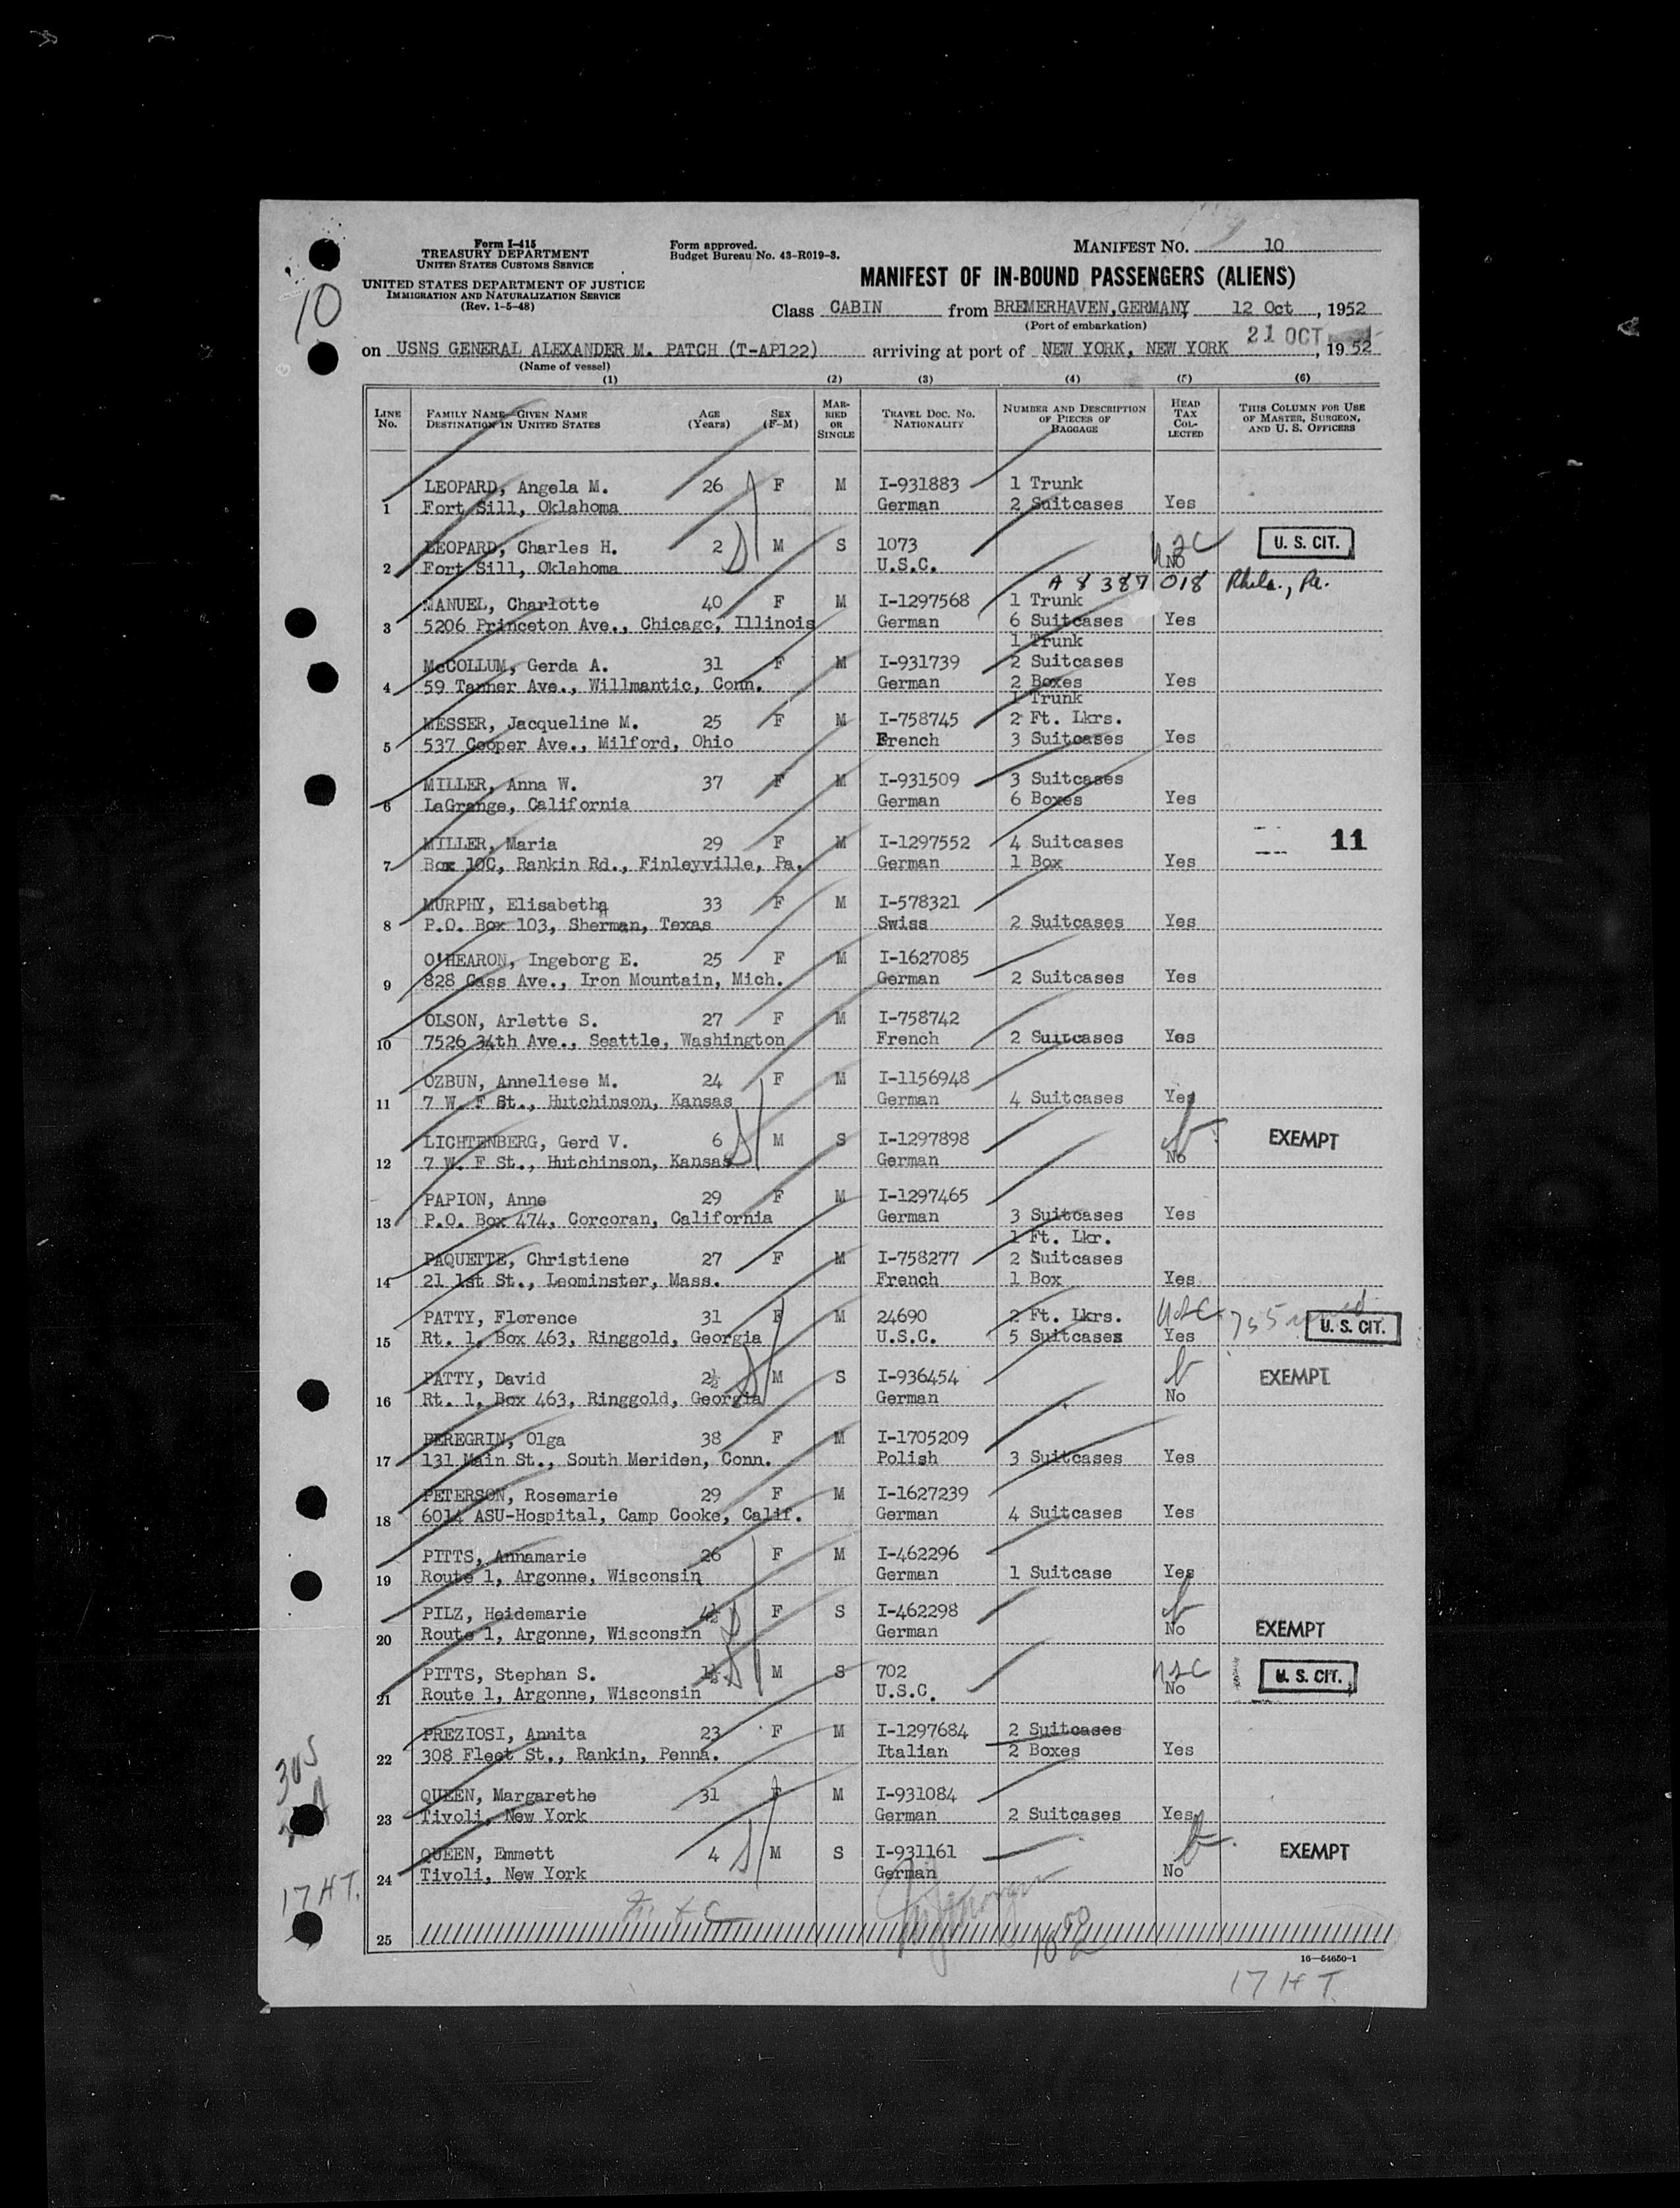 Form I-415
TREASURY DEPARTMENT
UNITED STATES CUSTOMS SERVICE
UNITED STATES DEPARTMENT OF JUSTICE
IMMIGRATION AND NATURALIZATION SERVICE
(Rev. 1-5-48)
Form approved.
Budget Bureau No. 43-R019-3.
MANIFEST NO. 10
MANIFEST OF IN-BOUND PASSENGERS (ALIENS)
10
Class CABIN from BREMERHAVEN, GERMANY, 12 Oct, 1952
(Port of embarkation)
on USNS GENERAL ALEXANDER M. PATCH (T-AP122) arriving at port of NEW YORK, NEW YORK 21 OCT, 1952
(Name of vessel)
(1) (2) (3) (4) (5) (6)
LINE No. FAMILY NAME—GIVEN NAME DESTINATION IN UNITED STATES AGE (Years) SEX (F-M) MARRIED OR SINGLE TRAVEL DOC. NO. NATIONALITY NUMBER AND DESCRIPTION OF PIECES OF BAGGAGE HEAD TAX COLLECTED THIS COLUMN FOR USE OF MASTER, SURGEON, AND U. S. OFFICERS
LEOPARD, Angela M. 26 F M I-931883 1 Trunk
1 Fort Sill, Oklahoma German 2 Suitcases Yes
LEOPARD, Charles H. 2 M S 1073 USC U. S. CIT.
2 Fort Sill, Oklahoma U.S.C. No
A 8 387 018 Phila., Pa.
MANUEL, Charlotte 40 F M I-1297568 1 Trunk
3 5206 Princeton Ave., Chicago, Illinois German 6 Suitcases Yes
1 Trunk
McCOLLUM, Gerda A. 31 F M I-931739 2 Suitcases
4 59 Tanner Ave., Willmantic, Conn. German 2 Boxes Yes
1 Trunk
MESSER, Jacqueline M. 25 F M I-758745 2 Ft. Lkrs.
5 537 Cooper Ave., Milford, Ohio French 3 Suitcases Yes
MILLER, Anna W. 37 F M I-931509 3 Suitcases
6 LaGrange, California German 6 Boxes Yes
MILLER, Maria 29 F M I-1297552 4 Suitcases 11
7 Box 10C, Rankin Rd., Finleyville, Pa. German 1 Box Yes
MURPHY, Elisabetha 33 F M I-578321
8 P.O. Box 103, Sherman, Texas Swiss 2 Suitcases Yes
O'HEARON, Ingeborg E. 25 F M I-1627085
9 828 Cass Ave., Iron Mountain, Mich. German 2 Suitcases Yes
OLSON, Arlette S. 27 F M I-758742
10 7526 34th Ave., Seattle, Washington French 2 Suitcases Yes
OZBUN, Anneliese M. 24 F M I-1156948
11 7 W. F St., Hutchinson, Kansas German 4 Suitcases Yes
LICHTENBERG, Gerd V. 6 M S I-1297898 EXEMPT
12 7 W. F St., Hutchinson, Kansas German No
PAPION, Anne 29 F M I-1297465
13 P.O. Box 474, Corcoran, California German 3 Suitcases Yes
1 Ft. Lkr.
PAQUETTE, Christiene 27 F M I-758277 2 Suitcases
14 21 1st St., Leominster, Mass. French 1 Box Yes
PATTY, Florence 31 F M 24690 2 Ft. Lkrs. USC
15 Rt. 1, Box 463, Ringgold, Georgia U.S.C. 5 Suitcases Yes U. S. CIT.
PATTY, David 2½ M S I-936454 EXEMPT
16 Rt. 1, Box 463, Ringgold, Georgia German No
PEREGRIN, Olga 38 F M I-1705209
17 131 Main St., South Meriden, Conn. Polish 3 Suitcases Yes
PETERSON, Rosemarie 29 F M I-1627239
18 6014 ASU-Hospital, Camp Cooke, Calif. German 4 Suitcases Yes
PITTS, Annamarie 26 F M I-462296
19 Route 1, Argonne, Wisconsin German 1 Suitcase Yes
PILZ, Heidemarie 4½ F S I-462298
20 Route 1, Argonne, Wisconsin German No EXEMPT
PITTS, Stephan S. 1½ M S 702 USC U. S. CIT.
21 Route 1, Argonne, Wisconsin U.S.C. No
PREZIOSI, Annita 23 F M I-1297684 2 Suitcases
22 308 Fleet St., Rankin, Penna. Italian 2 Boxes Yes
305
QUEEN, Margarethe 31 F M I-931084
23 Tivoli, New York German 2 Suitcases Yes
QUEEN, Emmett 4 M S I-931161 EXEMPT
24 Tivoli, New York German No
17 HT.
25
16—54650-1
17 HT.